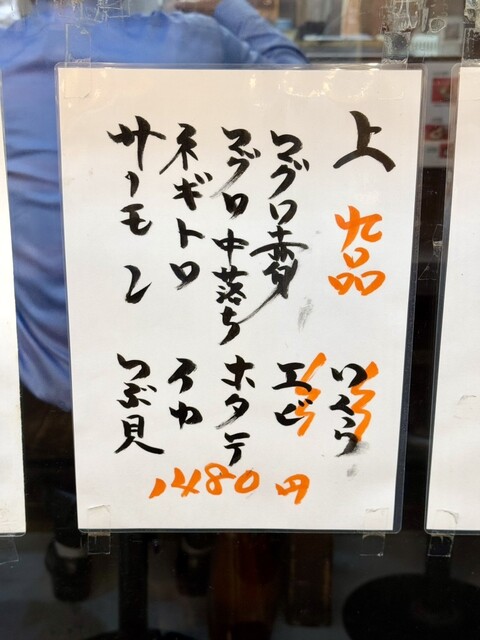 上 九品
マグロ赤身
マグロ中落ち
ネギトロ
サーモン
いくら
エビ
ホタテ
イカ
つぶ貝
1480円